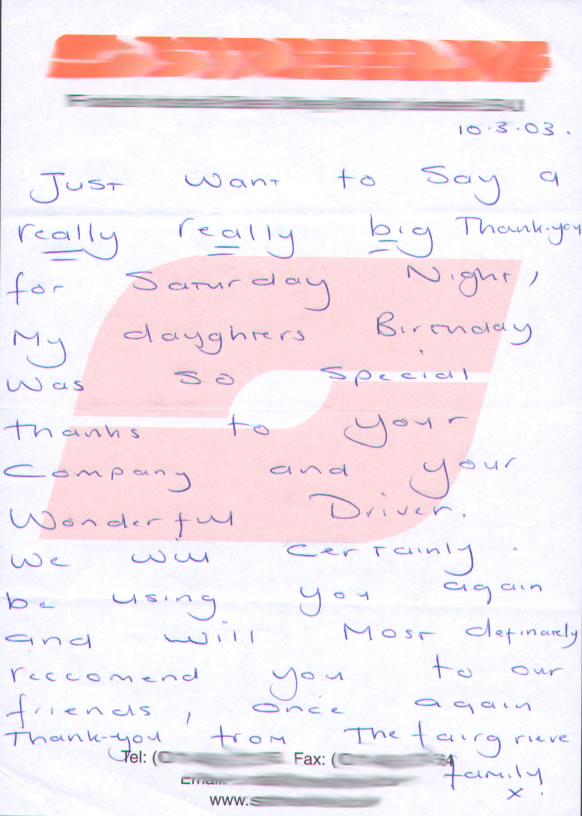 10.3.03.
Just want to say a
really really big Thank-you
for Saturday Night,
My daughters Birthday
was so special
thanks to your
Company and your
Wonderful Driver.
We will certainly
be using you again
and will Most definately
reccomend you to our
friends, once again
Thank-you from The fairgrieve
family
x.
Tel: ( Fax: (
Email:
www.